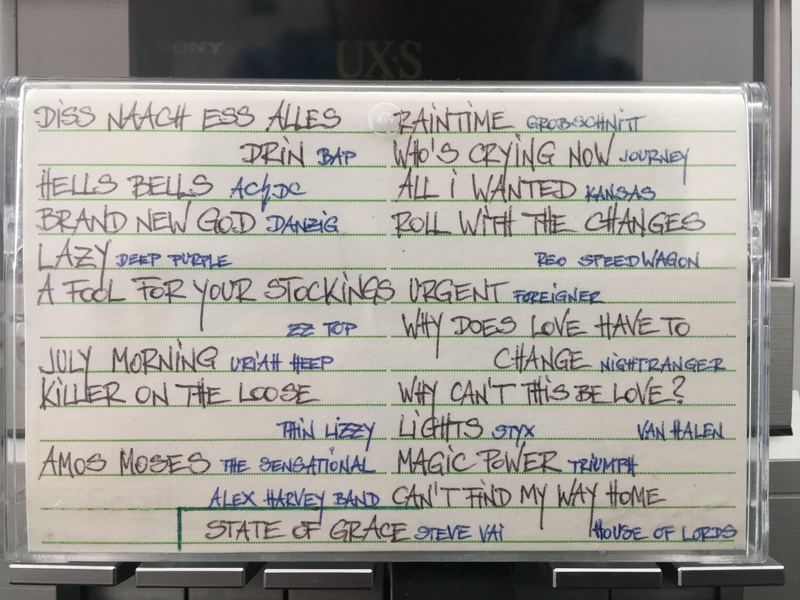 SONY
UX·S
DISS NAACH ESS ALLES
DRIN BAP
HELLS BELLS AC/DC
BRAND NEW GOD DANZIG
LAZY DEEP PURPLE
A FOOL FOR YOUR STOCKINGS
ZZ TOP
JULY MORNING URIAH HEEP
KILLER ON THE LOOSE
THIN LIZZY
AMOS MOSES THE SENSATIONAL
ALEX HARVEY BAND
RAINTIME GROBSCHNITT
WHO'S CRYING NOW JOURNEY
ALL I WANTED KANSAS
ROLL WITH THE CHANGES
REO SPEEDWAGON
URGENT FOREIGNER
WHY DOES LOVE HAVE TO
CHANGE NIGHTRANGER
WHY CAN'T THIS BE LOVE?
VAN HALEN
LIGHTS STYX
MAGIC POWER TRIUMPH
CAN'T FIND MY WAY HOME
HOUSE OF LORDS
STATE OF GRACE STEVE VAI